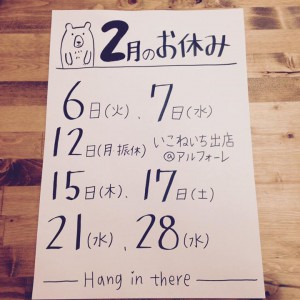 2月のお休み
6日(火)、7日(水)
12日(月振休) いこねいち出店
@アルフォーレ
15日(木)、17日(土)
21(水)、28(水)
Hang in there